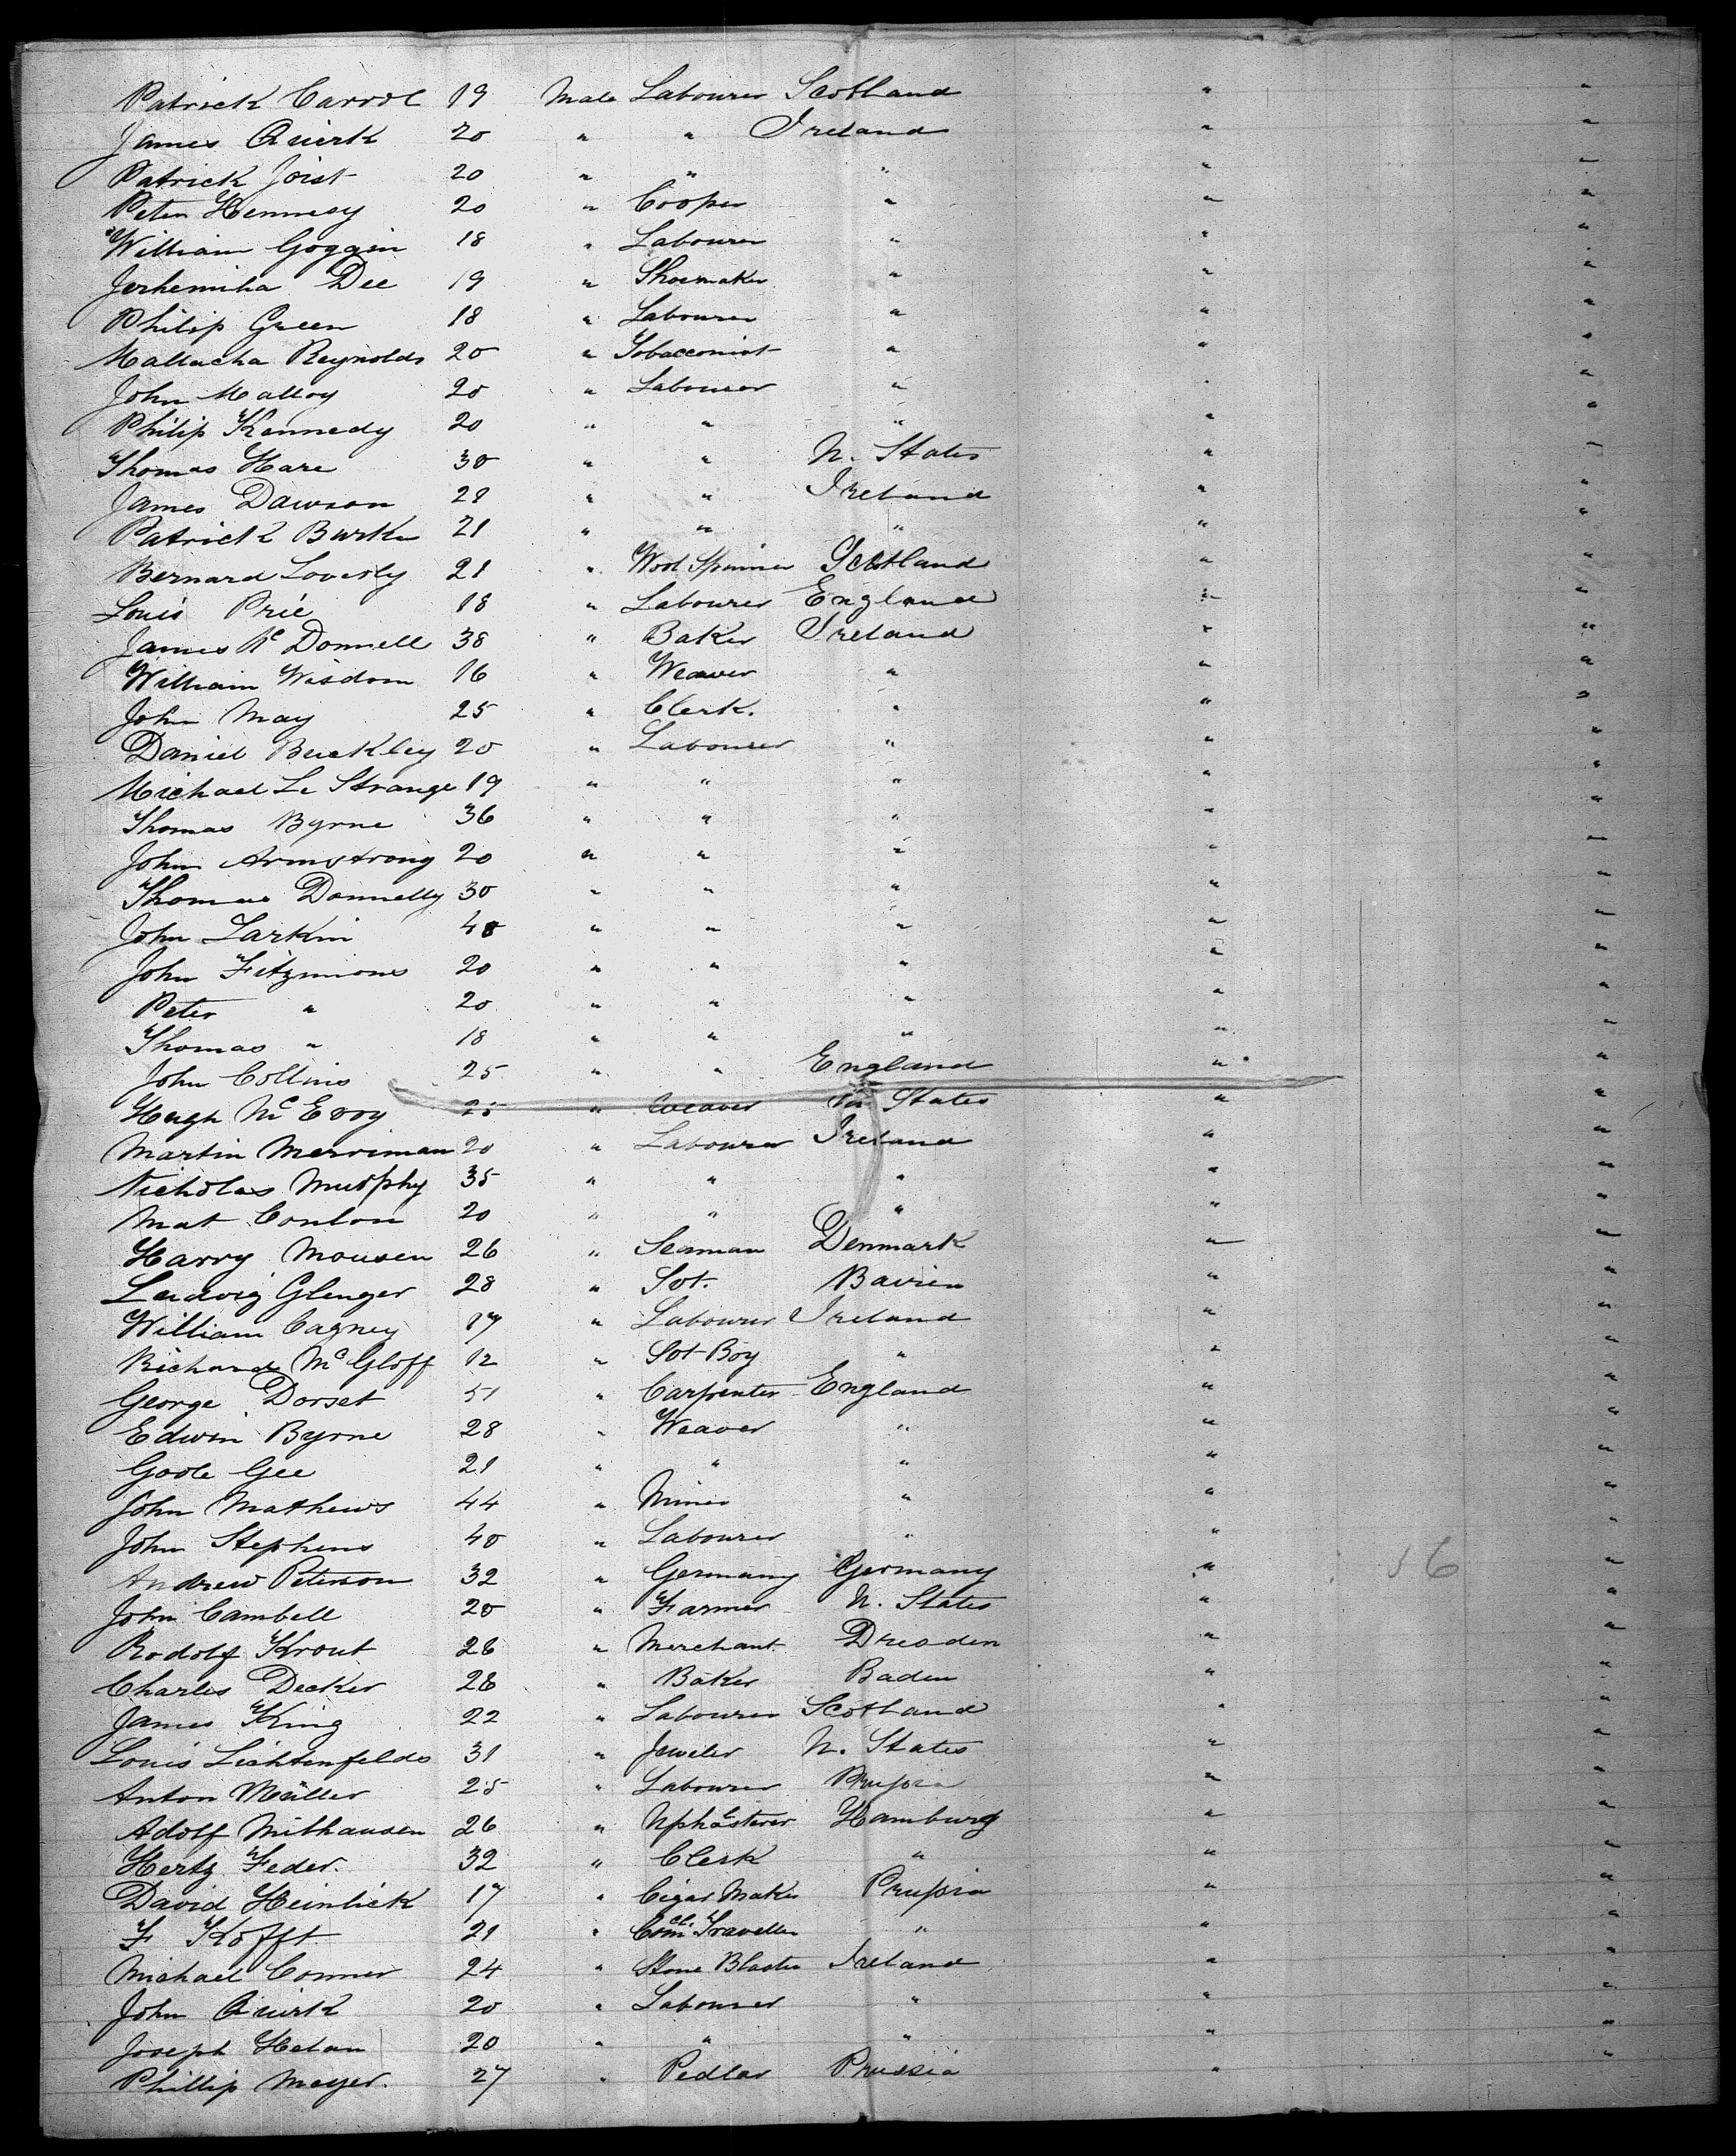 Patrick Carrol 19 Male Labourer Scotland " "
James Quirk 20 " " Ireland " "
Patrick Joist 20 " " " " "
Peter Hennesy 20 " Cooper " " "
William Goggin 18 " Labourer " " "
Jerhemiha Dee 19 " Shoemaker " " "
Philip Green 18 " Labourer " " "
Mallacha Reynolds 20 " Tobacconist " " "
John Malloy 20 " Labourer " " "
Philip Kennedy 20 " " " " "
Thomas Hare 30 " " U. States " "
James Dawson 28 " " Ireland " "
Patrick Burke 21 " " " " "
Bernard Loverly 21 " Wool Spinner Scotland " "
Louis Prie 18 " Labourer England " "
James Mc Donnell 38 " Baker Ireland " "
William Wisdom 16 " Weaver " " "
John May 25 " Clerk. " " "
Daniel Buckley 20 " Labourer " " "
Michael Le Strange 19 " " " " "
Thomas Byrne 36 " " " " "
John Armstrong 20 " " " " "
Thomas Donnelly 30 " " " " "
John Larkin 40 " " " " "
John Fitzmions 20 " " " " "
Peter " 20 " " " " "
Thomas " 18 " " " " "
John Collins 25 " " England " "
Hugh Mc Evoy 25 " Weaver U. States " "
Martin Merriman 20 " Labourer Ireland " "
Nicholas Murphy 35 " " " " "
Mat Conlon 20 " " " " "
Harry Mousen 26 " Seaman Denmark " "
Ludvig Glenger 28 " Sot. Bairen " "
William Cagney 17 " Labourer Ireland " "
Richard Mc Gloff 12 " Sot Boy " " "
George Dorset 51 " Carpenter England " "
Edwin Byrne 28 " Weaver " " "
Goole Gee 21 " " " " "
John Mathews 44 " Miner " " "
John Stephens 40 " Labourer " " "
Andrew Peterson 32 " Germany Germany " 56 "
John Cambell 20 " Farmer U. States " "
Rodolf Krout 26 " Merchant Dresden " "
Charles Decker 26 " Baker Baden " "
James King 22 " Labourer Scotland " "
Louis Lichtenfelds 31 " Jeweler U. States " "
Anton Müller 25 " Labourer Prussia " "
Adolf Milhausen 26 " Upholsterer Hamburg " "
Hertz Feder. 32 " Clerk " " "
David Heinlick 17 " Cigar Maker Prussia " "
F Kofft 21 " Comcl. Traveller " " "
Michael Conner 24 " Stone Blaster Ireland " "
John Quirk 20 " Labourer " " "
Joseph Helan 20 " " " " "
Phillip Meyer. 27 " Pedlar Prussia " "